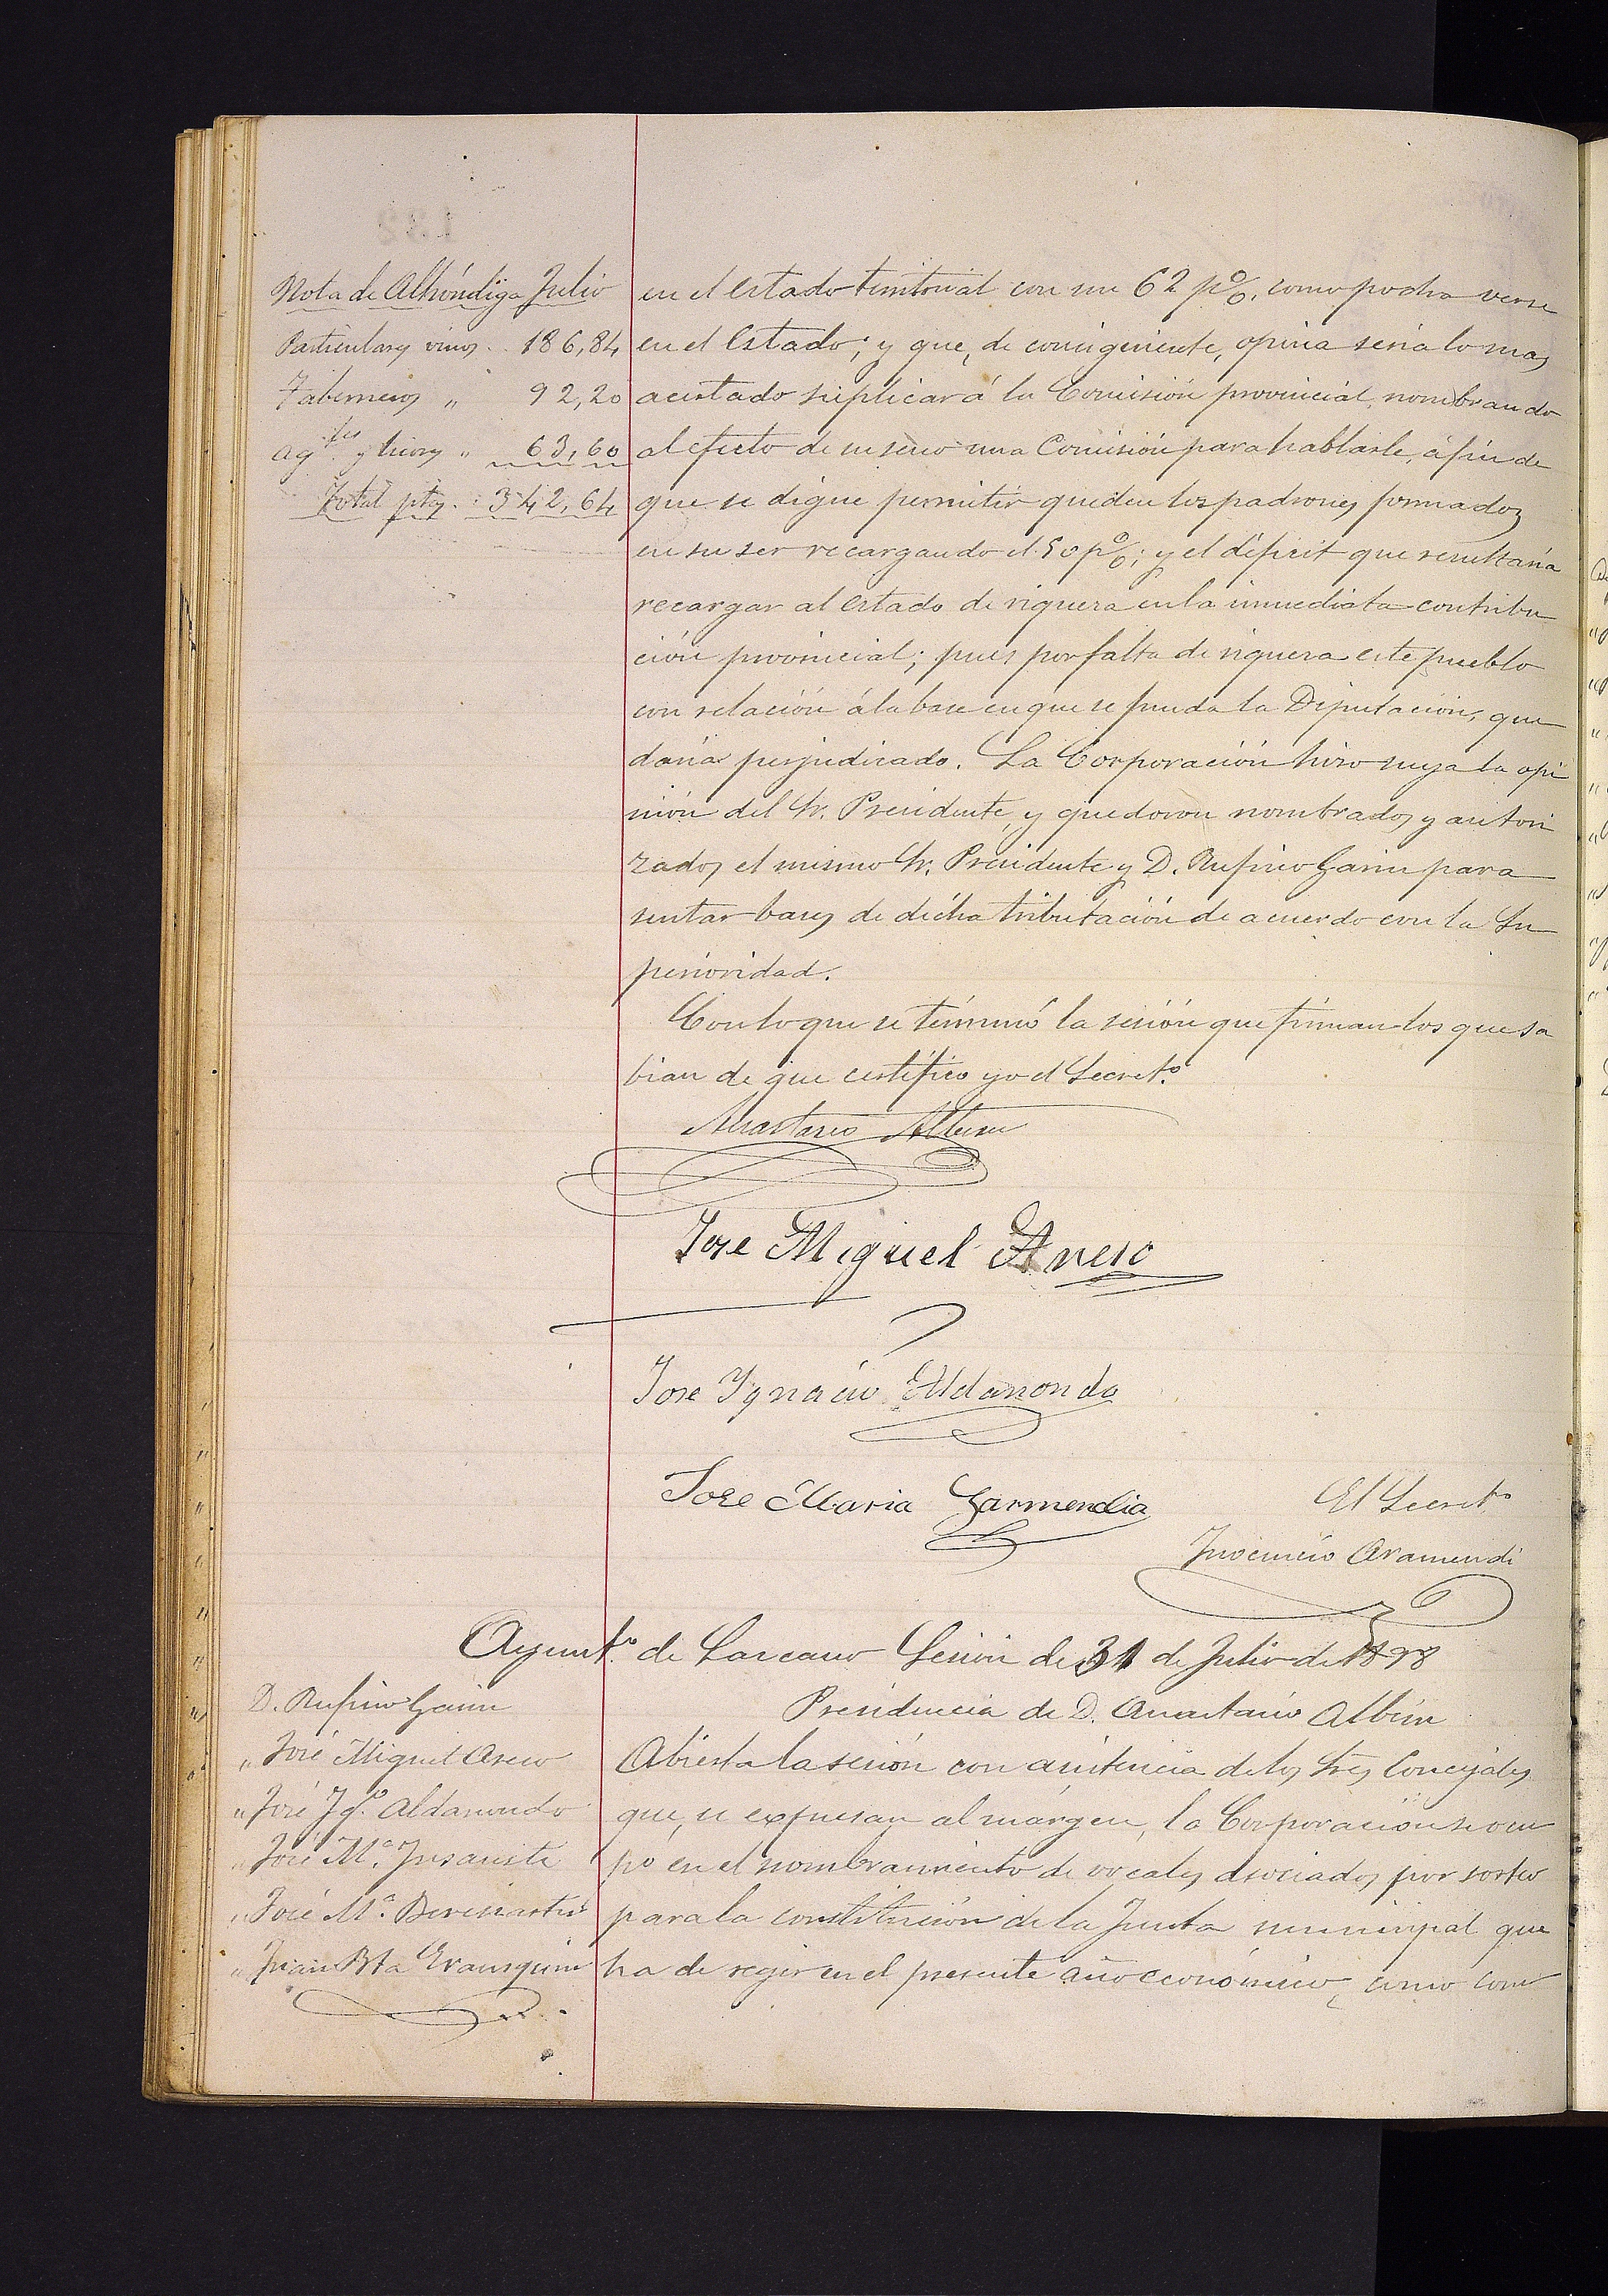 Nota de Alhóndiga Julio
Particulares vinos .. 186,84
Taberneros " 92,20
Ag.tes y licores " 63,60
Total ptas. : 342,64
en el estado territorial con un 62 p%, como podra verse
en el Estado; y que, de consiguiente, opina seria lo mas
acertado suplicar á la Comisión provincial, nombrando
al efecto de su seno una Comisión para hablarle, á fin de
que se digne permitir queden los padrones formados
en su ser recargando el 50 p%; y el déficit que resultaria
recargar al estado de riqueza en la inmediata contribu
ción provincial; pues por falta de riqueza este pueblo
con relación á la base en que se funda la Diputación, que
daria perjudicado. La Corporación hizo suya la opi
nión del Sr. Presidente, y quedaron nombrados y autori
zados el mismo Sr. Presidente y D. Rufino Garin para
sentar bases de dicha tributación de acuerdo con la Su
perioridad.
Con lo que se terminó la sesión que firman los que sa
bian de que certifico yo el Secret.º
Anastasio Albisu
Jose Miguel Aseso
Jose Ygnacio Aldanondo
Jose Maria Garmendia
El Secret.º
Inocencio Aramendi
Ayunt.º de Lazcano Sesión de 31 de Julio de 1898
Presidencia de D. Anastasio Albisu
D. Rufino Garin
" José Miguel Aseso
" José Ig.º Aldanondo
" José M.ª Insausti
" José M.ª
" Juan Bta Erausquin
Abierta la sesión con asistencia de los Sres Concejales
que se expresan al márgen, la Corporación se ocu
pó en el nombramiento de vocales asociados por sorteo
para la constitución de la Junta municipal que
ha de regir en el presente año económico, como con